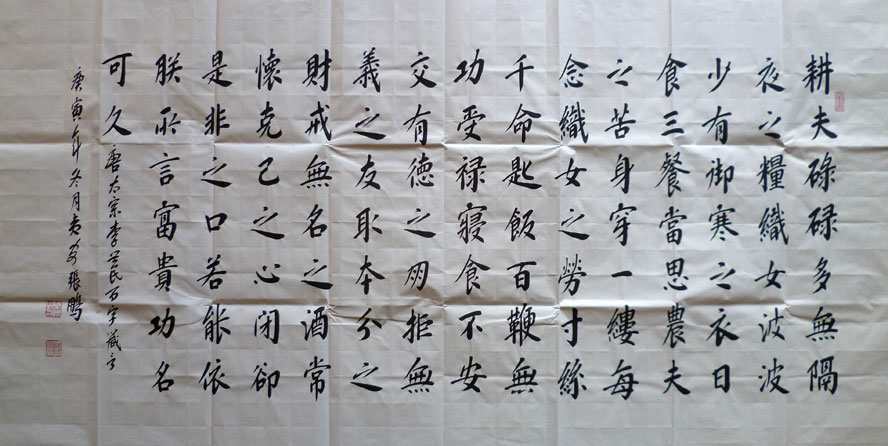 耕夫碌碌多無隔
夜之糧織女波波
少有御寒之衣日
食三餐當思農夫
之苦身穿一縷每
念織女之勞寸絲
千命匙飯百鞭無
功受禄寢食不安
交有德之朋拒無
義之友取本分之
財戒無名之酒常
懷克己之心閉卻
是非之口若能依
朕所言富貴功名
可久
唐太宗李世民百字箴言
庚寅年冬月張鵬